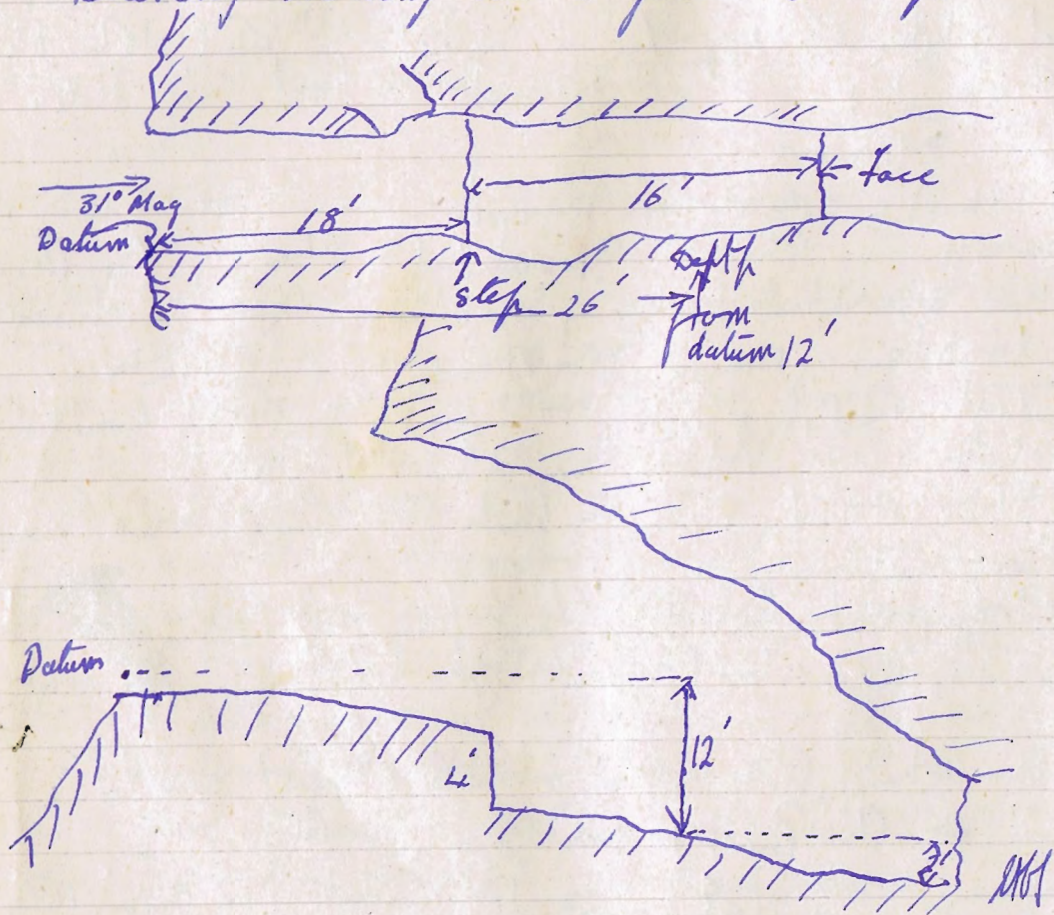 Face
16'
31° Mag
18'
Datum
Step
26'
Depth
from
datum 12'
Datum
4'
12'
2'